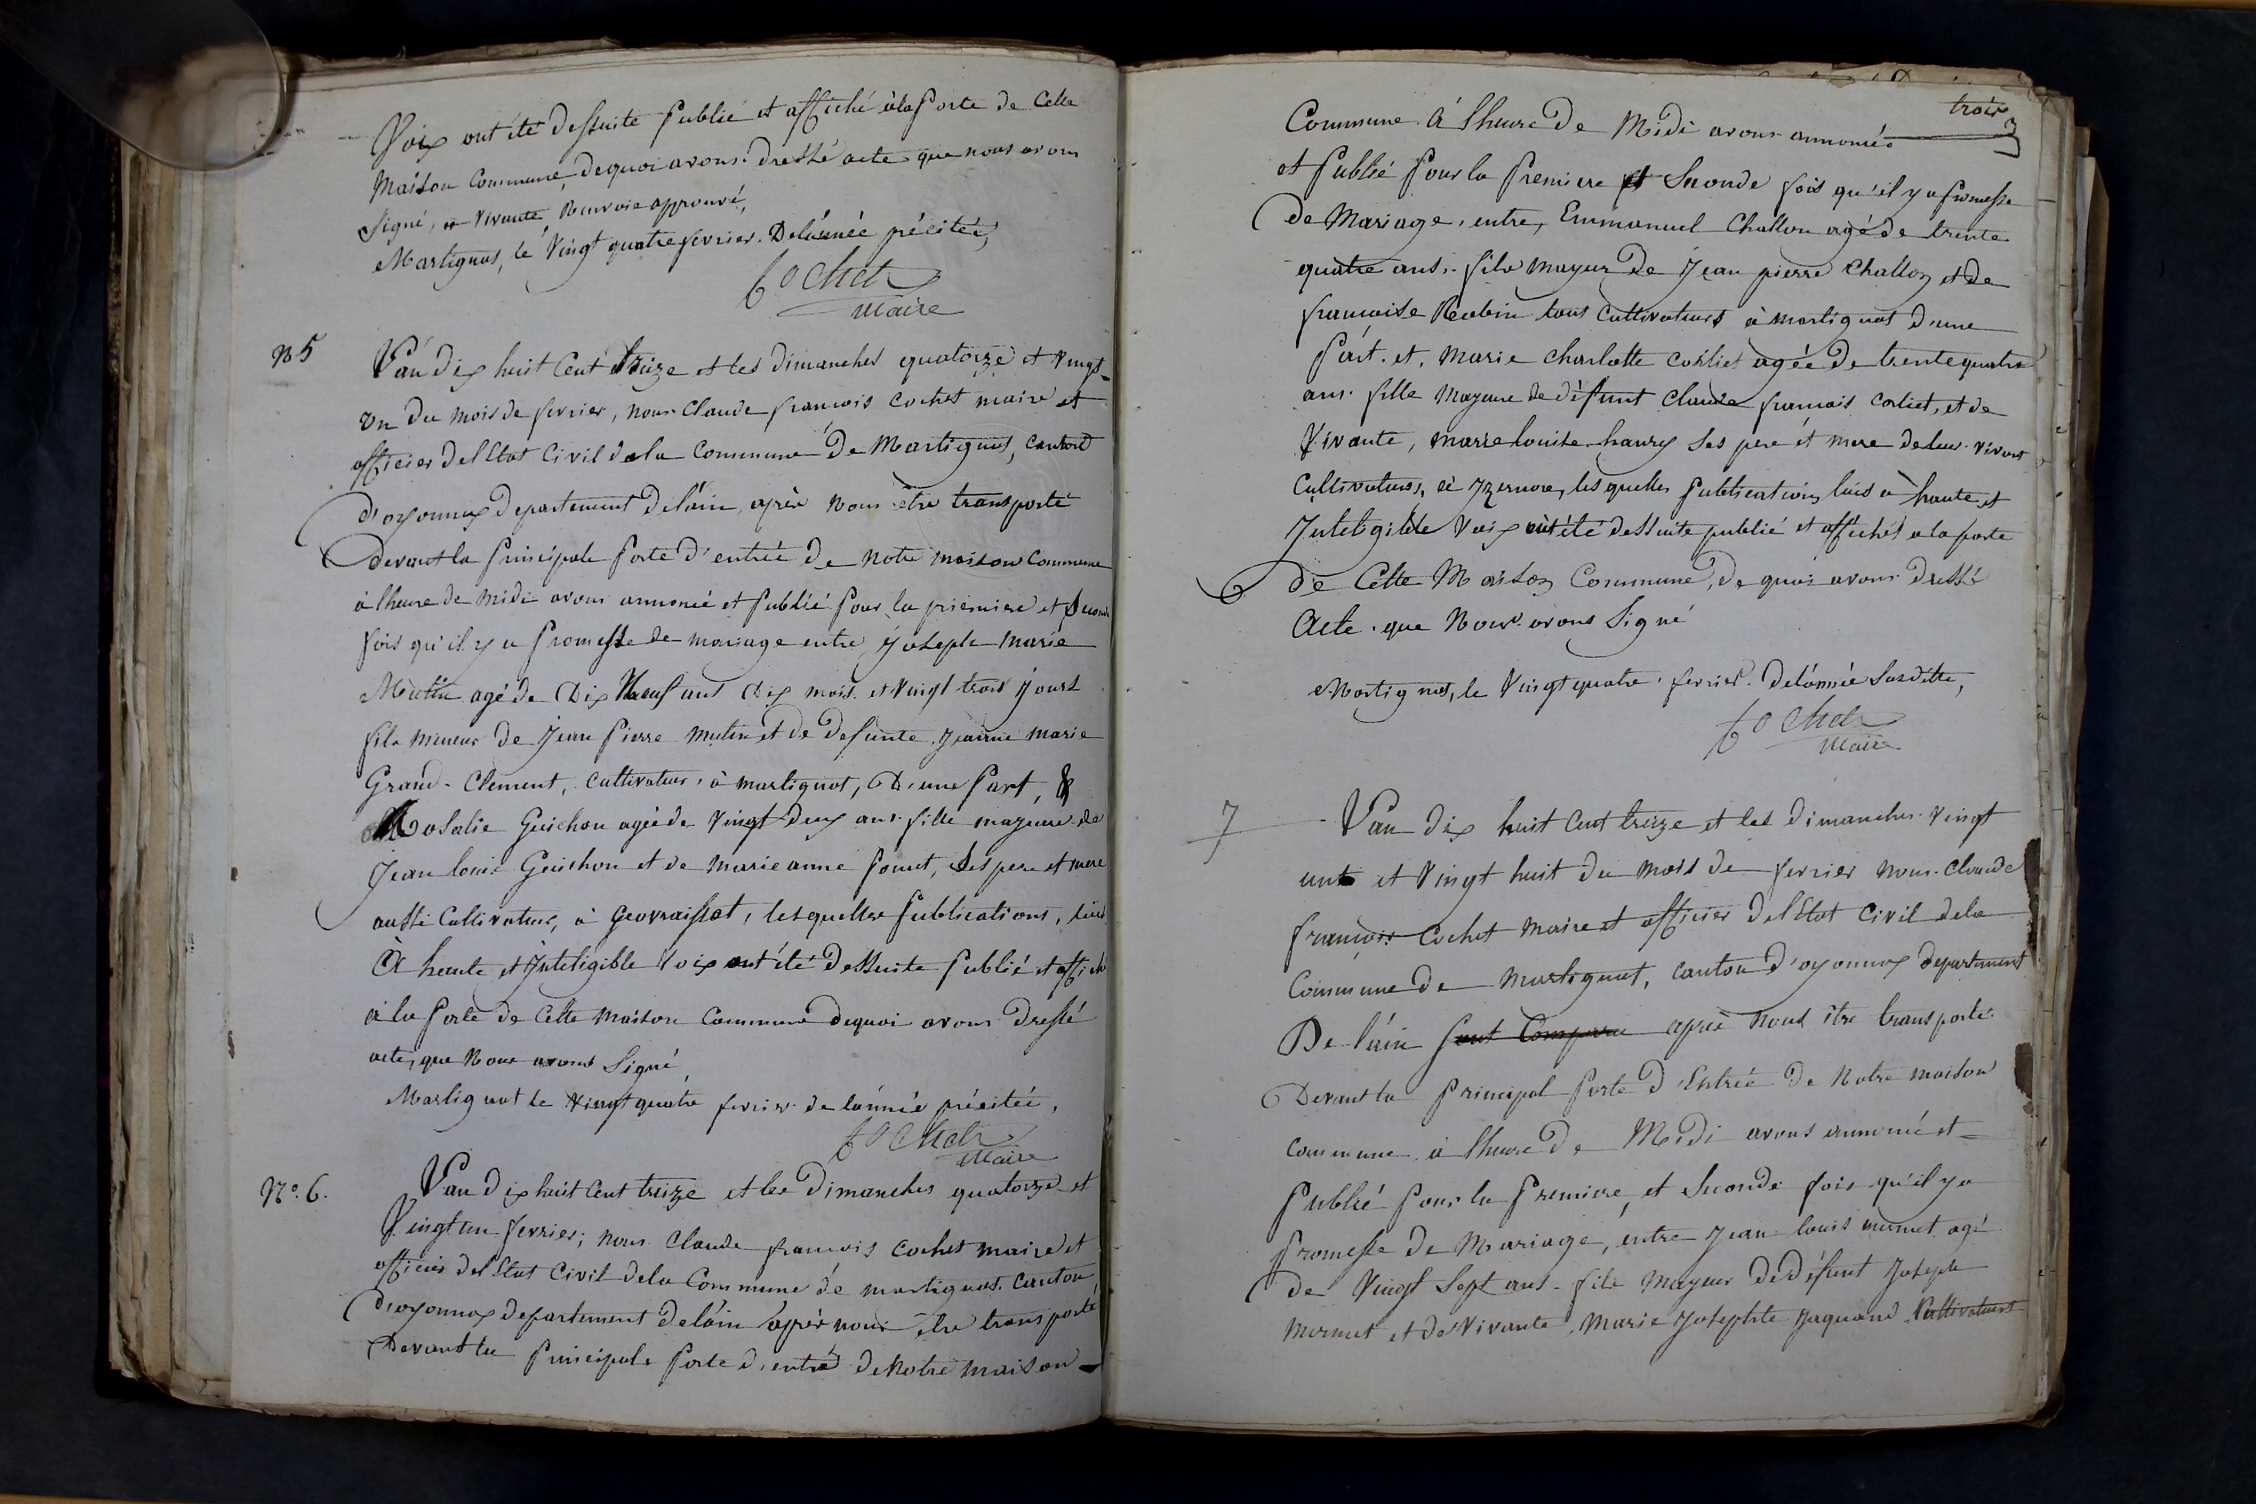 Voix ont été dessuite Publié et affiché à la Porte de Cette
Maison Commune, dequoi avons dressé acte que nous avons
signé, et vivante, Renvoie approuvé,
Martignat, le Vingt quatre fevrier. De l'année précitée,
Cochet
Maire
N 5
L'an dix huit Cent treize et les dimanches quatorze et vingt-
un du mois de fevrier, nous Claude françois Cochet maire et
officier de l'Etat Civil de la Commune De Martignat, canton
d'oyonnax departement de l'ain, après Nous être transporté
devant la Principale Porte d'entrée De Notre maison Commune
à l'heure de midi avons annoncé et Publié Pour la premiere et Seconde
fois qu'il y a Promesse de mariage entre Joseph Marie
Mutin agé de Dix Neuf ans Dix mois et Vingt trois jours
fils mineur de Jean Pierre Mutin et de defunte Jeanne Marie
Grand-Clement, Cultivateur à martignat, D'une Part, &
Rosalie Guichon agée de Vingt deux ans fille majeure de
Jean louis Guichon et de marie anne Ponet, Ses pere et mere
aussi Cultivateurs, à Geovraissiat, lesquelles Publications, lues
A haute et Inteligible Voix ont été Dessuite Publié et affiché
à la Porte de Cette Maison Commune dequoi avons Dressé
acte, que Nous avons Signé
Martignat le Vingt quatre fevrier de l'année précitée,
Cochet
Maire
N°. 6.
L'an dix huit Cent treize et les Dimanches quatorze et
Vingt un fevrier; nous Claude françois Cochet maire et
officier de l'Etat Civil de la Commune de martignat. Canton,
d'oyonnax departement De l'ain après nous être transporté
Devant la Principale Porte d'entrée De Notre Maison
trois
3
Commune. À l'heure De Midi avons annoncé
et Publié Pour la Premiere et Seconde fois qu'il y a promesse
de Mariage, entre, Emmanuel Challon agé de trente
quatre ans, fils mayeur De Jean pierre Challon et de
francoise Recebin tous Cultivateurs à martignat d'une
Part. et, Marie Charlotte Corliet agée De trente quatre
ans fille Mayeure de défunt Claude francois Corliet, et de
Vivante, marie louise haury Ses pere et mere de leur vivant
Cultivateurs, à Izernore, lesquelles Publications lues à haute et
Inteligible Voix ont été dessuite publié et affiché à la porte
de Cette Maison Commune, De quoi avons Dressé
Acte. que Nous avons Signé
Martignat, le Vingt quatre fevrier De l'année Susditte,
Cochet
Maire
7
L'an dix huit Cent treize et les dimanches Vingt
unt et Vingt huit du mois de fevrier Nous Claude
françois Cochet Maire et officier de l'Etat Civil de la
Commune De Martignat, canton d'oyonnax departement
De l'ain sont Comparu après Nous être transporté
Devant la Principal Porte d'Entrée De Notre maison
commune à l'heure De Midi avons annoncé et
Publié Pour la Premiere, et Seconde fois qu'il y a
Promesse De Mariage, entre Jean louis mermet agé
de Vingt Sept ans - fils Mayeur De défunt Joseph
Mermet et de Vivante Marie Josephte Jaquand Cultivateurs